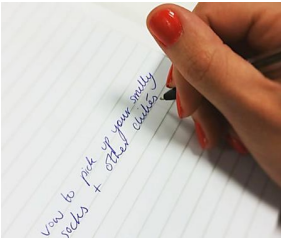 vow to pick up your smelly
socks + other duties